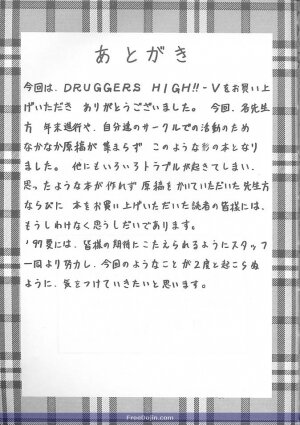 あとがき
今回は、DRUGGERS HIGH!!-Vをお買い上
げいただき ありがとうございました。 今回、各先生
方 年末進行や、自分達のサークルでの活動のため
なかなか原稿が集まらず このような形の本となり
ました。 他にもいろいろトラブルが起きてしまい、
思ったような本が作れず 原稿をかいていただいた先生方
ならびに 本をお買い上げいただいた読者の皆様には、
もうしわけなく思うしだいであります。
'99夏には、皆様の期待にこたえられるようにスタッフ
一同より努力し、今回のようなことが2度と起こらぬ
ように、気をつけていきたいと思います。
FreeDojin.com